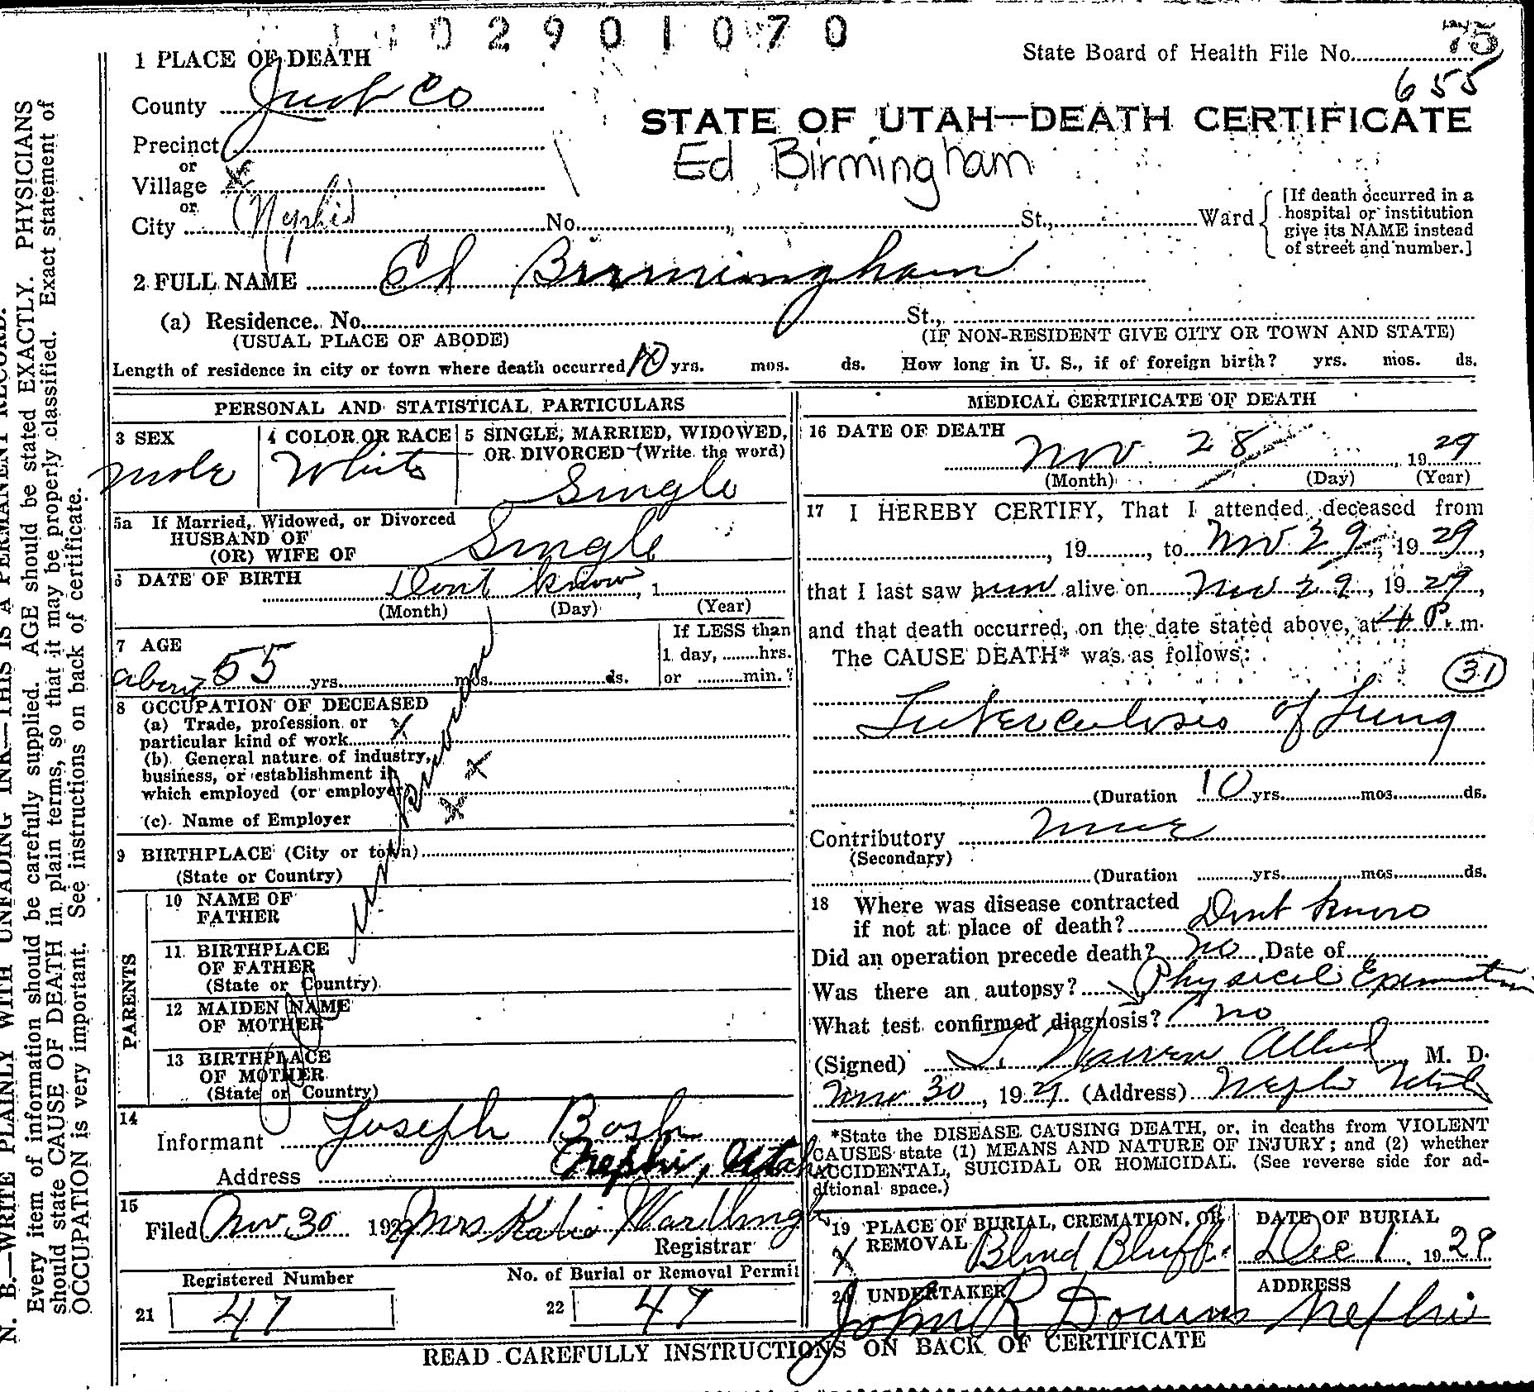 02901070
State Board of Health File No. 75
655
1 PLACE OF DEATH
County Juab Co
STATE OF UTAH—DEATH CERTIFICATE
Precinct
Ed Birmingham
or
Village x
or
City (Nephi) No. St., Ward
[If death occurred in a hospital or institution give its NAME instead of street and number.]
2 FULL NAME Ed Birmingham
(a) Residence. No. St.,
(USUAL PLACE OF ABODE) (IF NON-RESIDENT GIVE CITY OR TOWN AND STATE)
Length of residence in city or town where death occurred 10 yrs. mos. ds. How long in U. S., if of foreign birth? yrs. mos. ds.
PERSONAL AND STATISTICAL PARTICULARS
3 SEX
male
4 COLOR OR RACE
White
5 SINGLE, MARRIED, WIDOWED, OR DIVORCED (Write the word)
Single
5a If Married, Widowed, or Divorced
HUSBAND OF
(OR) WIFE OF Single
6 DATE OF BIRTH Dont know, 1
(Month) (Day) (Year)
7 AGE
about 55 yrs. mos. ds.
If LESS than
1 day, hrs.
or min.?
8 OCCUPATION OF DECEASED
(a) Trade, profession or
particular kind of work x
(b) General nature of industry,
business, or establishment in
which employed (or employer)
x
x
(c) Name of Employer
9 BIRTHPLACE (City or town)
(State or Country)
PARENTS
10 NAME OF FATHER
11 BIRTHPLACE OF FATHER
(State or Country)
12 MAIDEN NAME OF MOTHER
13 BIRTHPLACE OF MOTHER
(State or Country)
14
Informant Joseph Bosh
Address Nephi, Utah
15
Filed Nov 30 1929 Mrs Katie
Registrar
Registered Number
21 47
No. of Burial or Removal Permit
22 47
MEDICAL CERTIFICATE OF DEATH
16 DATE OF DEATH
Nov 28, 1929
(Month) (Day) (Year)
17 I HEREBY CERTIFY, That I attended deceased from
, 19, to Nov 29, 1929,
that I last saw him alive on Nov 29, 1929,
and that death occurred, on the date stated above, at P.m.
The CAUSE DEATH* was as follows:
31
Tuberculosis of Lung
(Duration 10 yrs. mos. ds.
Contributory none
(Secondary)
(Duration yrs. mos. ds.
18 Where was disease contracted
if not at place of death? Dont know
Did an operation precede death? no Date of
Was there an autopsy? Physical
What test confirmed diagnosis? no
(Signed) Warren M. D.
Nov 30, 1929 (Address) Nephi Utah
*State the DISEASE CAUSING DEATH, or, in deaths from VIOLENT
CAUSES state (1) MEANS AND NATURE OF INJURY; and (2) whether
ACCIDENTAL, SUICIDAL OR HOMICIDAL. (See reverse side for ad-
ditional space.)
19 PLACE OF BURIAL, CREMATION, OR
REMOVAL
x
DATE OF BURIAL
Dec 1 1929
20 UNDERTAKER
John R Downs
ADDRESS
Nephi
READ CAREFULLY INSTRUCTIONS ON BACK OF CERTIFICATE
N. B.—WRITE PLAINLY WITH UNFADING INK—THIS IS A PERMANENT RECORD.
Every item of information should be carefully supplied. AGE should be stated EXACTLY. PHYSICIANS
should state CAUSE OF DEATH in plain terms, so that it may be properly classified. Exact statement of
OCCUPATION is very important. See instructions on back of certificate.